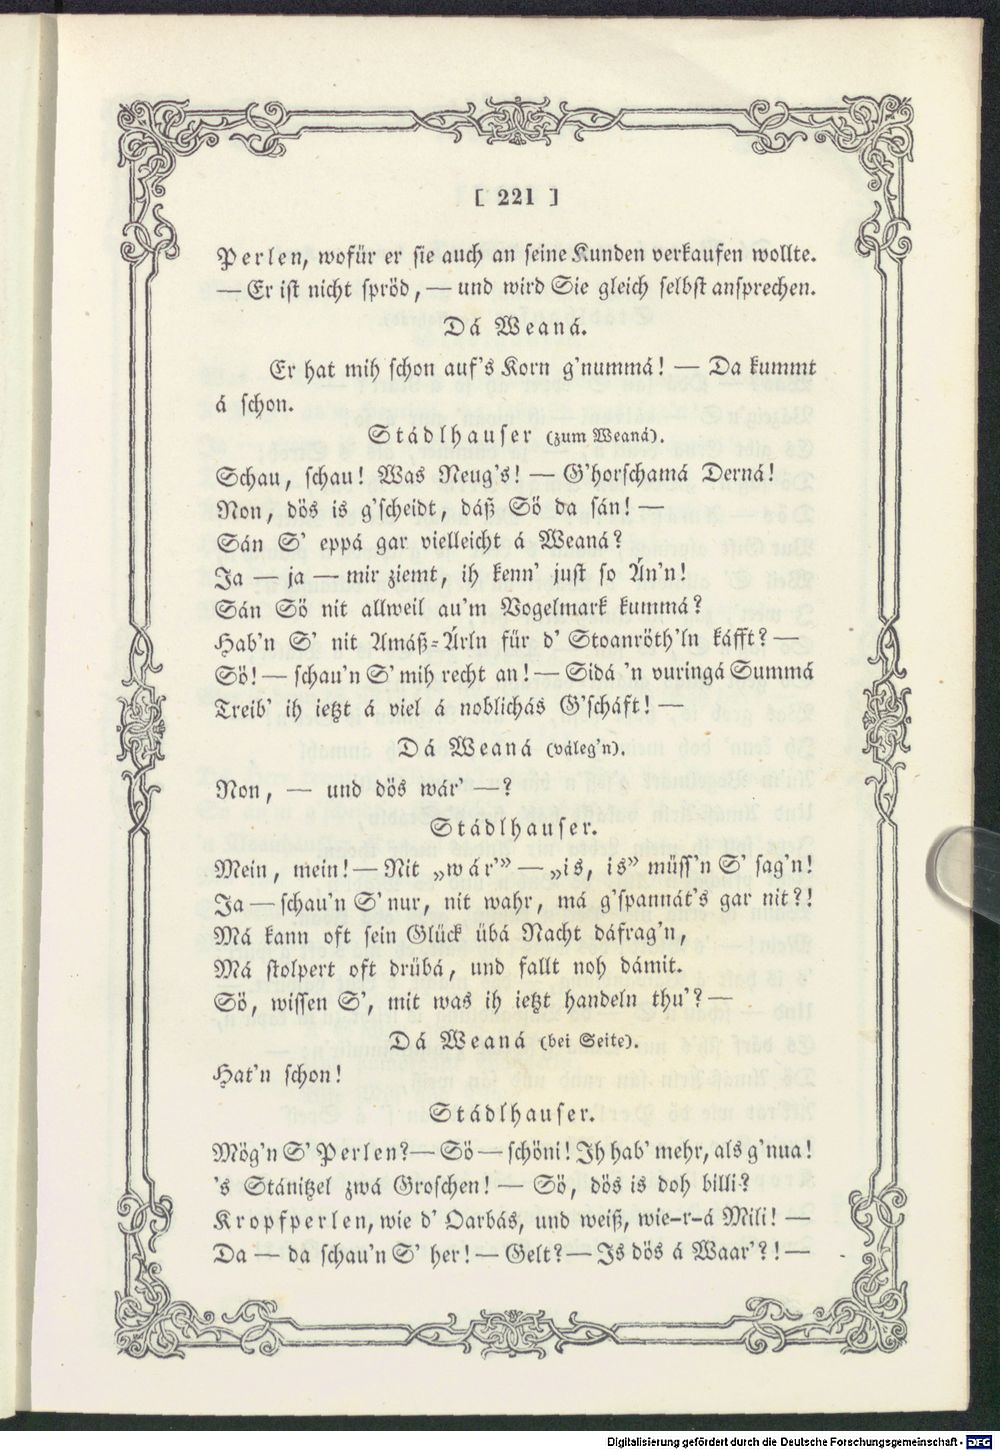 [ 221 ]
Perlen, wofür er sie auch an seine Kunden verkaufen wollte.
— Er ist nicht spröd, — und wird Sie gleich selbst ansprechen.
Dá Weaná.
Er hat mih schon auf's Korn g'nummá! — Da kummt
á schon.
Städlhauser (zum Weaná).
Schau, schau! Was Neug's! — G'horschamá Derná!
Non, dös is g'scheidt, dáß Sö da sán! —
Sán S' eppá gar vielleicht á Weaná?
Ja — ja — mir ziemt, ih kenn' just so Án'n!
Sán Sö nit allweil au'm Vogelmark kummá?
Hab'n S' nit Amáß-Árln für d' Stoanröth'ln káfft? —
Sö! — schau'n S' mih recht an! — Sidá 'n vuringá Summá
Treib' ih ietzt á viel á noblichás G'scháft! —
Dá Weaná (váleg'n).
Non, — und dös wár' —?
Städlhauser.
Mein, mein! — Nit „wár'” — „is, is” müss'n S' sag'n!
Ja — schau'n S' nur, nit wahr, má g'spannát's gar nit?!
Má kann oft sein Glück übá Nacht dáfrag'n,
Má stolpert oft drübá, und fallt noh dámit.
Sö, wissen S', mit was ih ietzt handeln thu'? —
Dá Weaná (bei Seite).
Hat'n schon!
Städlhauser.
Mög'n S' Perlen? — Sö — schöni! Ih hab' mehr, als g'nua!
's Stánitzel zwá Groschen! — Sö, dös is doh billi?
Kropfperlen, wie d' Oarbás, und weiß, wie-r-á Mili! —
Da — da schau'n S' her! — Gelt? — Is dös á Waar'?! —
Digitalisierung gefördert durch die Deutsche Forschungsgemeinschaft - DFG